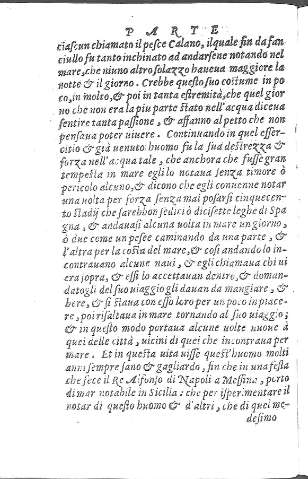 PARTE
cias, un chiamato il pesce Calano, il quale fin da fan
ciullo fu tanto inchinato ad andarsene notando nel
mare, che niuno altro solazzo haueua maggiore la
notte & il giorno. Crebbe questo suo costume in po
co, in molto, & poi in tanta estremità, che quel gior
no che non era la piu parte stato nell'acqua diceua
sentire tanta passione, & affanno al petto che non
pensaua poter uiuere. Continuando in quel esser-
citio & già uenuto huomo fu la sua destrezza &
forza nell'acqua tale, che anchora che fusse gran
tempesta in mare egli lo notaua senza timore ò
pericolo alcuno, & dicono che egli conuenne notar
una uolta per forza senza mai posarsi cinquecen-
to stadij che sarebbon sedici ò dicisette leghe di Spa
gna, & andauasi alcuna uolta in mare un giorno,
ò due come un pesce caminando da una parte, &
l'altra per la costa del mare, & così andando lo in-
contrauano alcune naui, & egli chiamaua chi ui
era sopra, & essi lo accettauan dentro, & doman-
datogli del suo uiaggio gli dauan da mangiare, &
bere, & si staua con esso loro per un poco in piace-
re, poi risaltaua in mare tornando al suo uiaggio;
& in questo modo portaua alcune uolte nuoue à
quei delle città, uicini di quei che incontraua per
mare. Et in questa uita uisse quest'huomo molti
anni sempre sano & gagliardo, fin che in una festa
che fece il Re Alfonso di Napoli a Messina, porto
di mar notabile in Sicilia: che per isperimentare il
notar di questo huomo & d'altri, che di quei me-
desimo